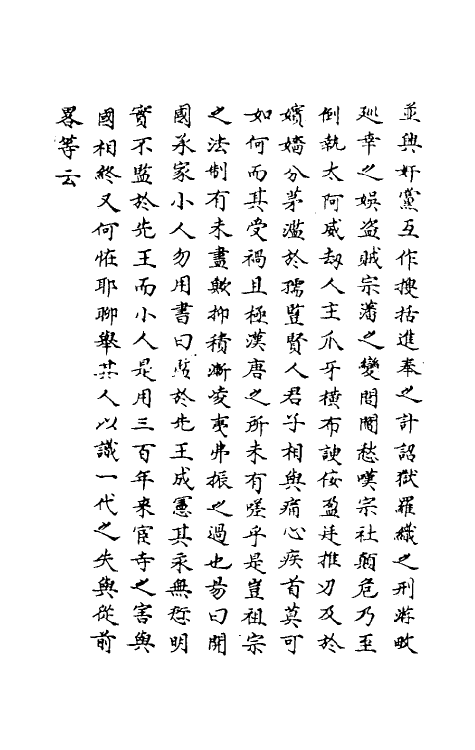 並興奸黨互作搜括進奉之計詔獄羅織之刑游畋
廵幸之娛盜賊宗藩之變閭閻愁嘆宗社顛危乃至
倒執太阿威刼人主爪牙橫布諛佞盈廷推刃及於
嬪嬙分茅濫於孺豎賢人君子相與痛心疾首莫可
如何而其受禍且極漢唐之所未有嗟乎是豈祖宗
之法制有未盡歟抑積漸凌夷弗振之過也昜曰開
國承家小人勿用書曰監於先王成憲其永無愆明
實不監於先王而小人是用三百年來宦寺之害與
國相終又何恠耶聊舉其人以識一代之失與從前
畧等云